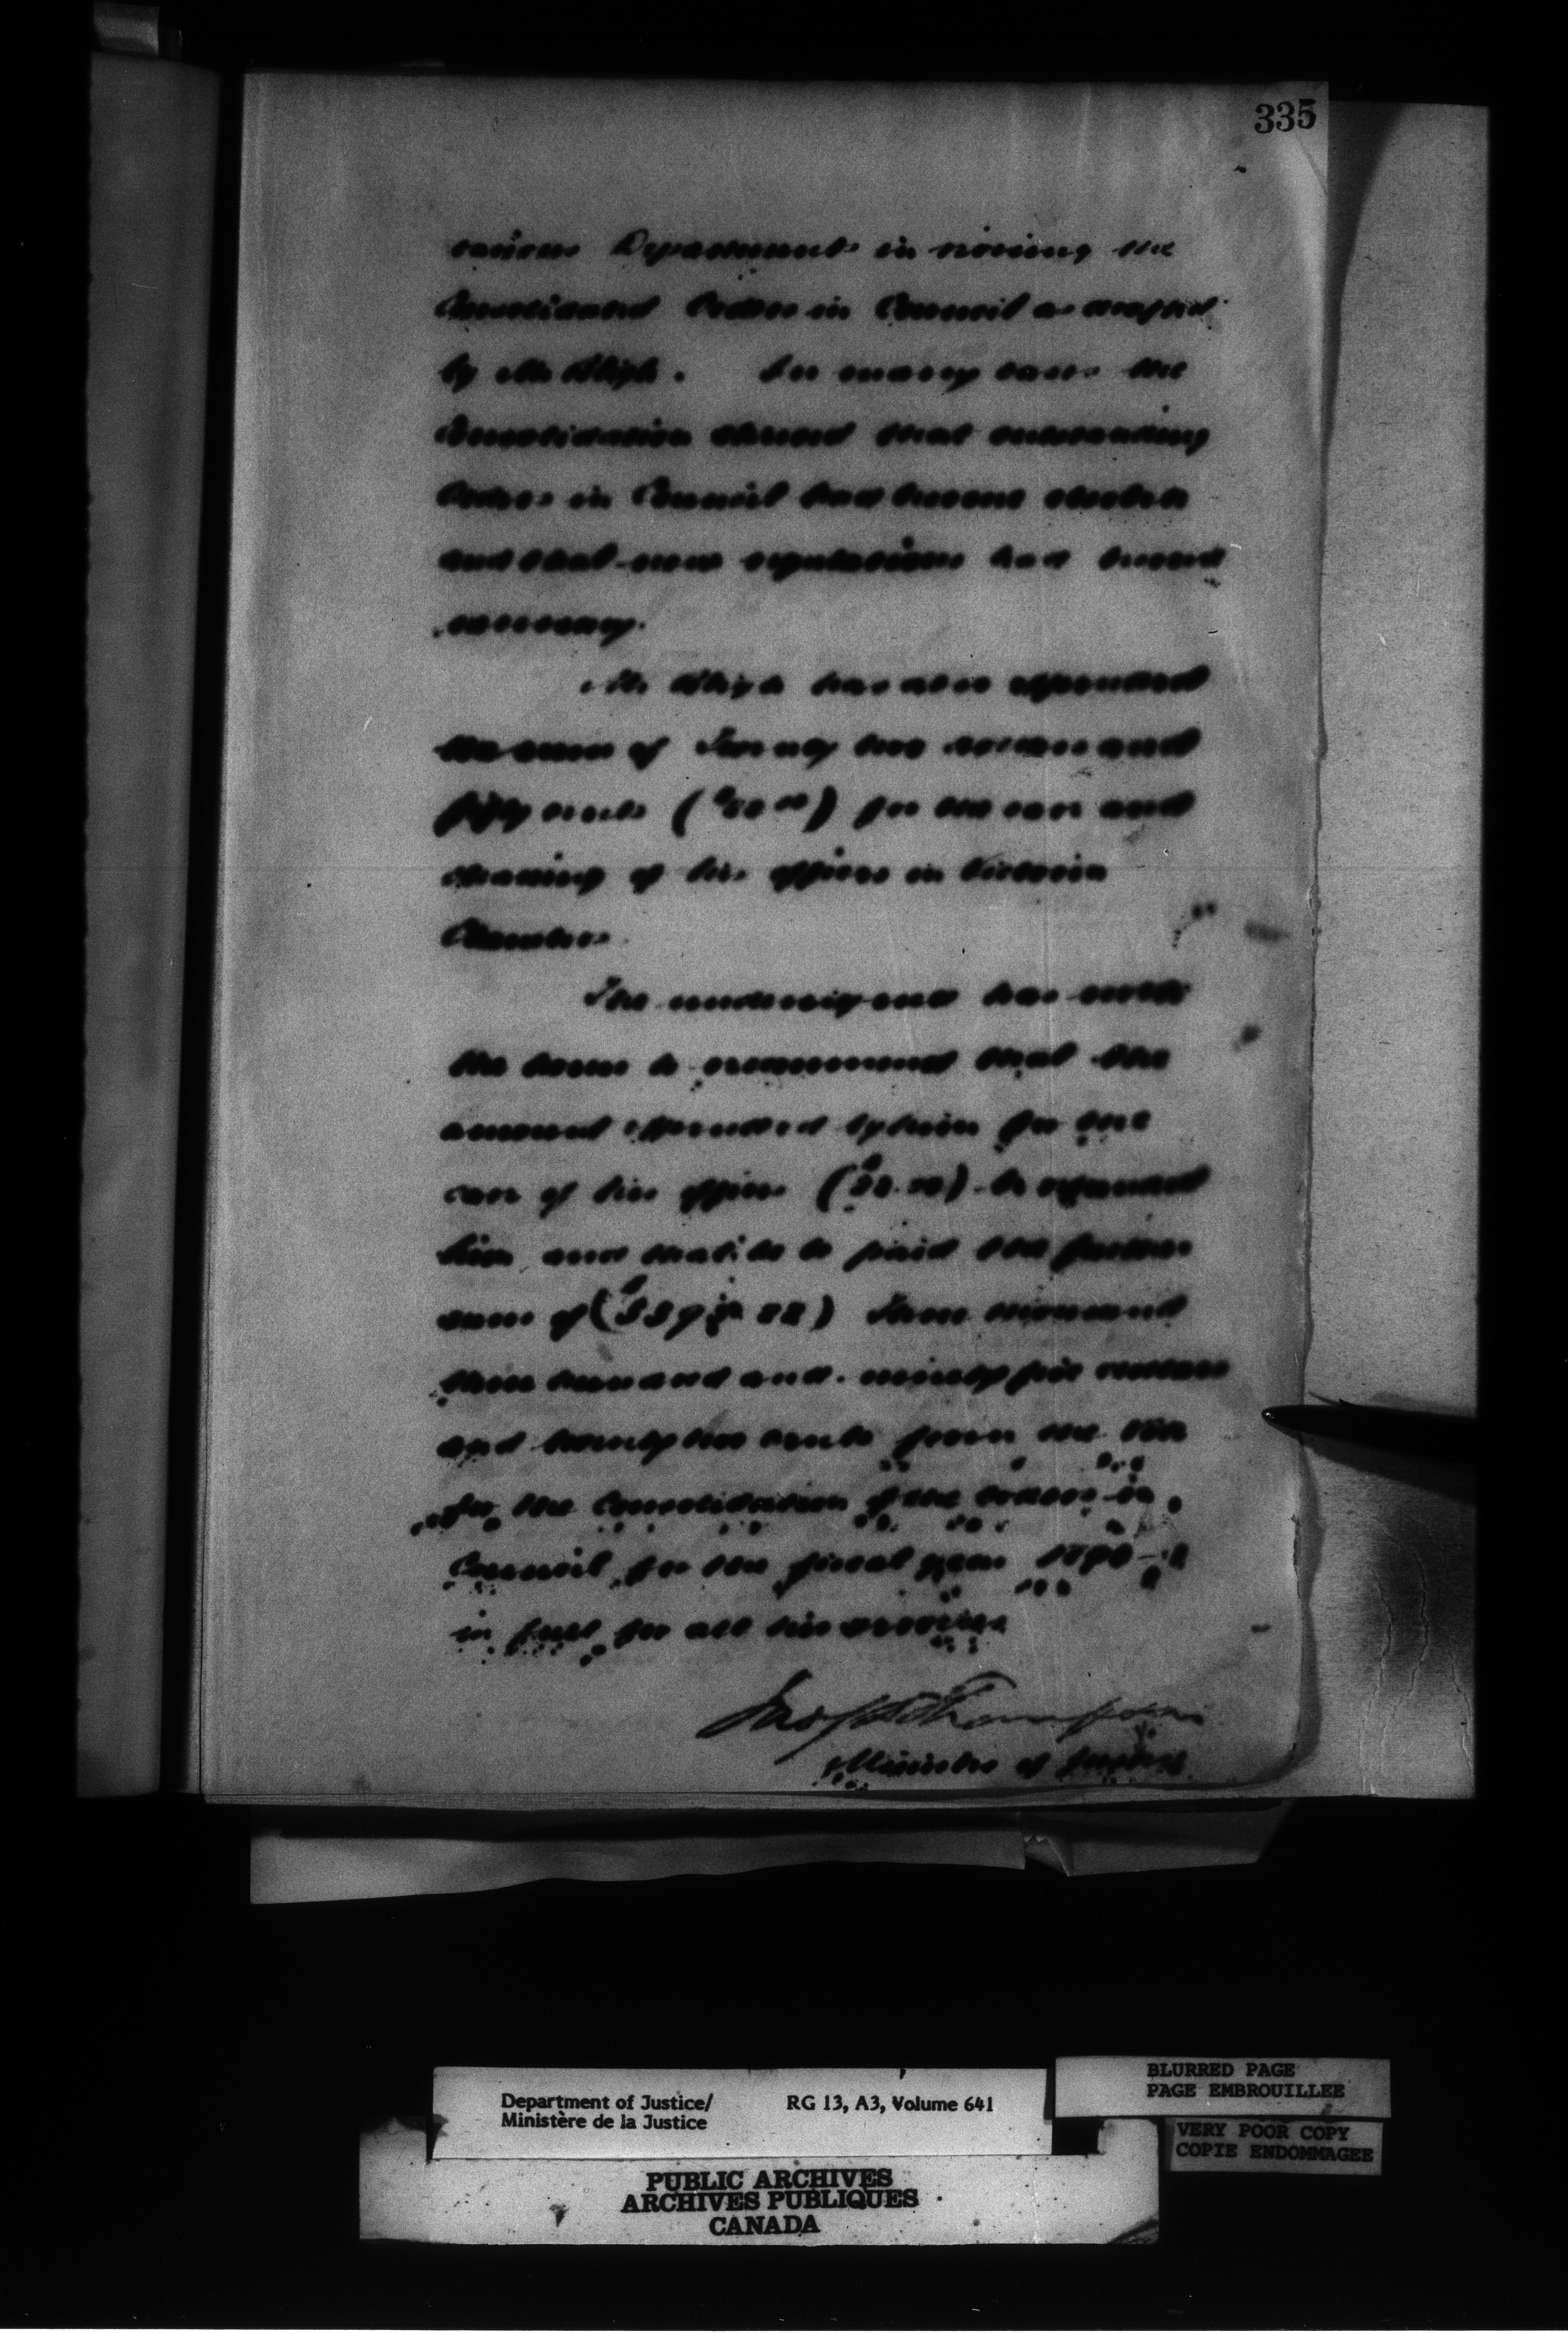 335
various Departments in revising the
Consolidated Orders in Council as drafted
by Mr Bligh. In many cases the
Consolidation showed that outstanding
Orders in Council had become obsolete
and that new regulations had become
necessary.
Mr Bligh has also expended
the sum of two dollars and
fifty cents for the care and
cleaning of his offices in Victoria
Chambers.
The undersigned has
the honor to recommend that the
amount expended by him for the
care of his offices be refunded
him and that he be paid the further
sum of Three thousand
three hundred and ninety five dollars
and twenty two cents from the
for the Consolidation of the orders in
Council for the fiscal year 1890-1
in full for all his services
Jno S D Thompson
Minister of Justice
Department of Justice/
Ministère de la Justice
RG 13, A3, Volume 641
BLURRED PAGE
PAGE EMBROUILLEE
VERY POOR COPY
COPIE ENDOMMAGEE
PUBLIC ARCHIVES
ARCHIVES PUBLIQUES
CANADA